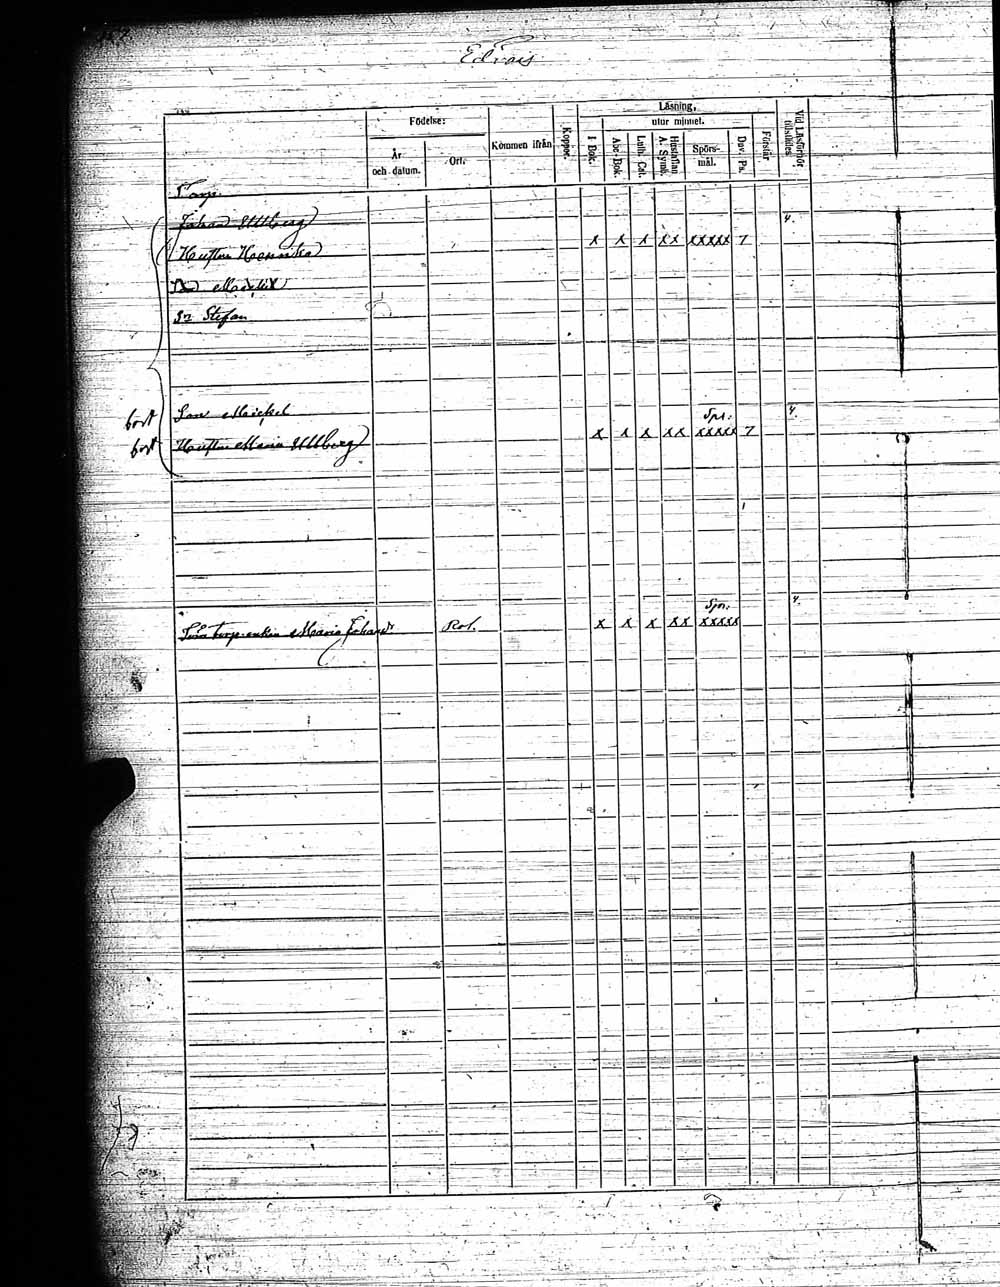 Edvais
Födelse:
Kommen ifrån
Koppor.
Läsning,
utur minnet.
År
och datum.
Ort.
I Bok.
Abc-Bok.
Luth. Cat.
Hustaflan
A. Symb.
Spörs-
mål.
Dav. Ps.
Förstår
Vid Läsförhör
tillstädes
Torp.
Johan Ullberg 4.
Hustrun x x x xx xxxxx 7
Mickel
Stefan
bort Son Mickel Sps: 4.
bort Hustrun Maria Ullberg x x x xx xxxxx 7
Spr: 4.
enkan Maria Johansdr Rol. x x x xx xxxxx